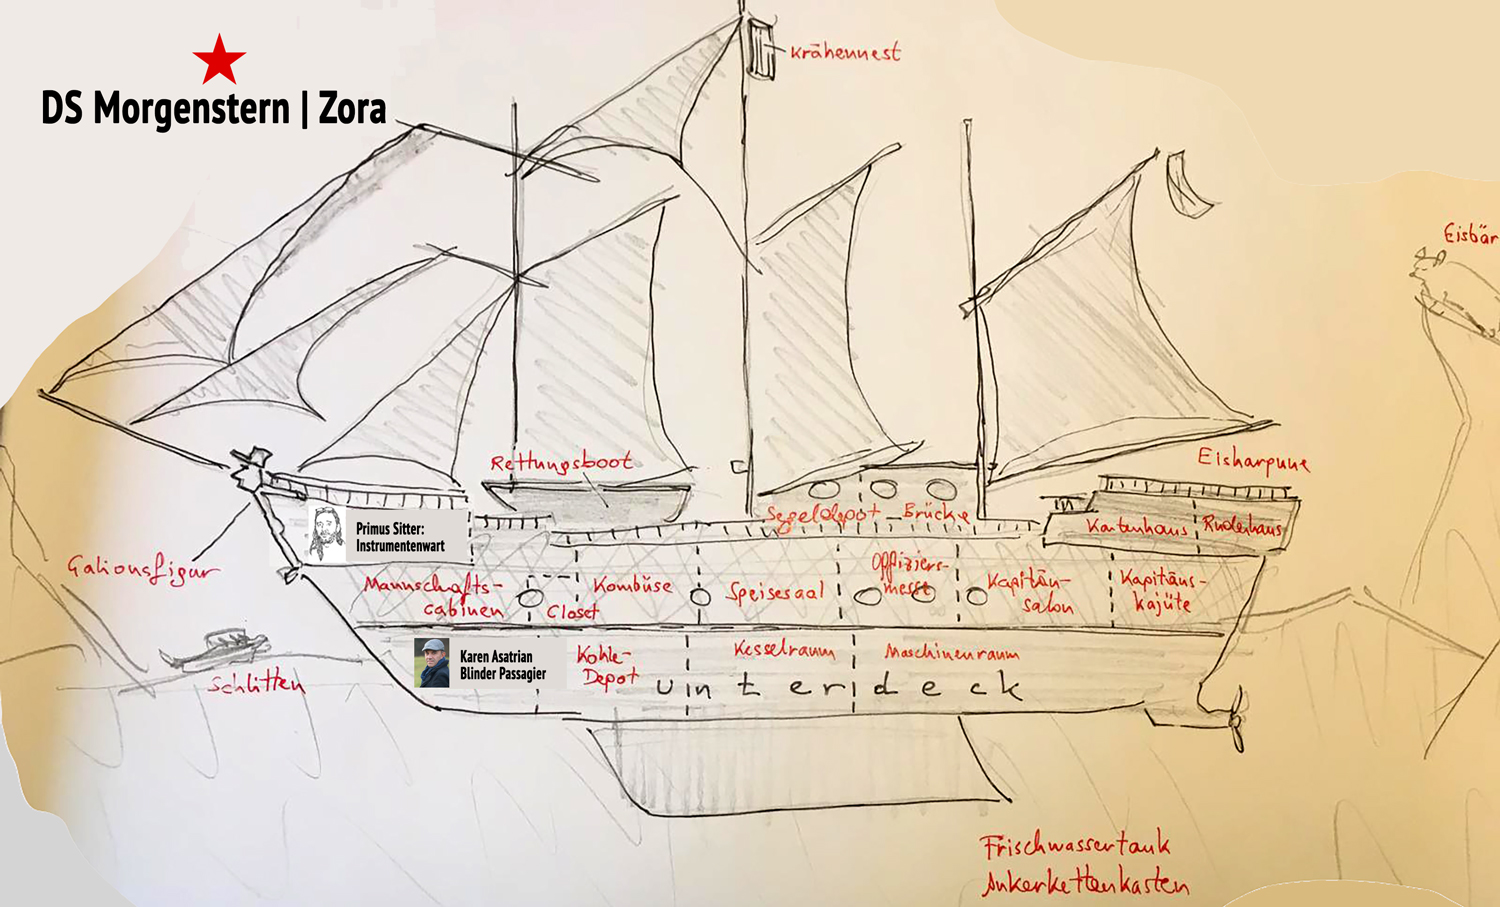 Krähennest
DS Morgenstern | Zora
Eisbär
Rettungsboot
Eisharpune
Segeldepot
Brücke
Kartenhaus
Ruderhaus
Primus Sitter:
Instrumentenwart
Galionsfigur
Mannschafts-
cabinen
Closet
Kombüse
Speisesaal
Offiziers-
messe
Kapitän-
salon
Kapitäns-
kajüte
Schlitten
Karen Asatrian
Blinder Passagier
Kohle-
Depot
Kesselraum
Maschinenraum
Unterdeck
Frischwassertank
Ankerkettenkasten